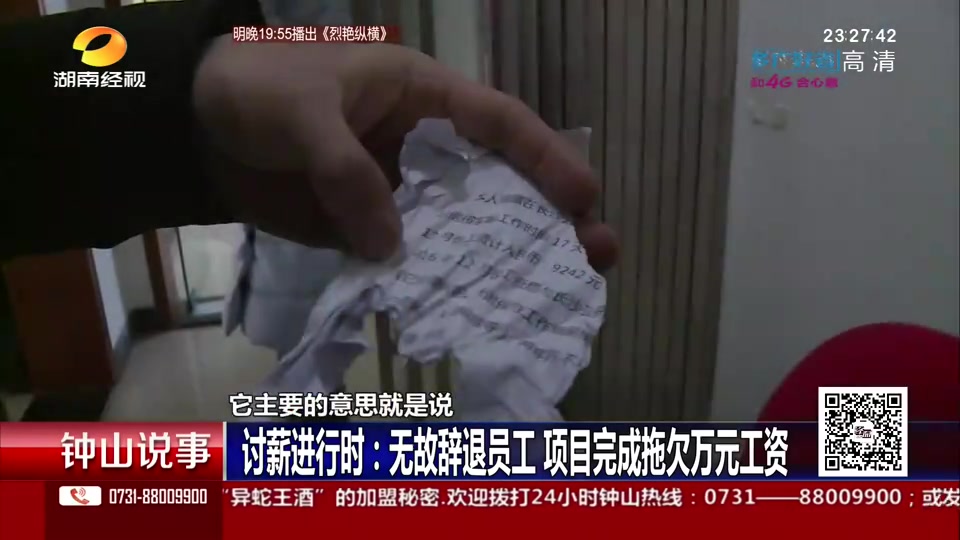 明晚19:55播出《烈艳纵横》
23:27:42
湖南经视
高清
和4G 合心意
工作时间 17天
9242元
它主要的意思就是说
钟山说事
讨薪进行时：无故辞退员工 项目完成拖欠万元工资
0731-88009900
“异蛇王酒”的加盟秘密.欢迎拨打24小时钟山热线：0731——88009900；或发